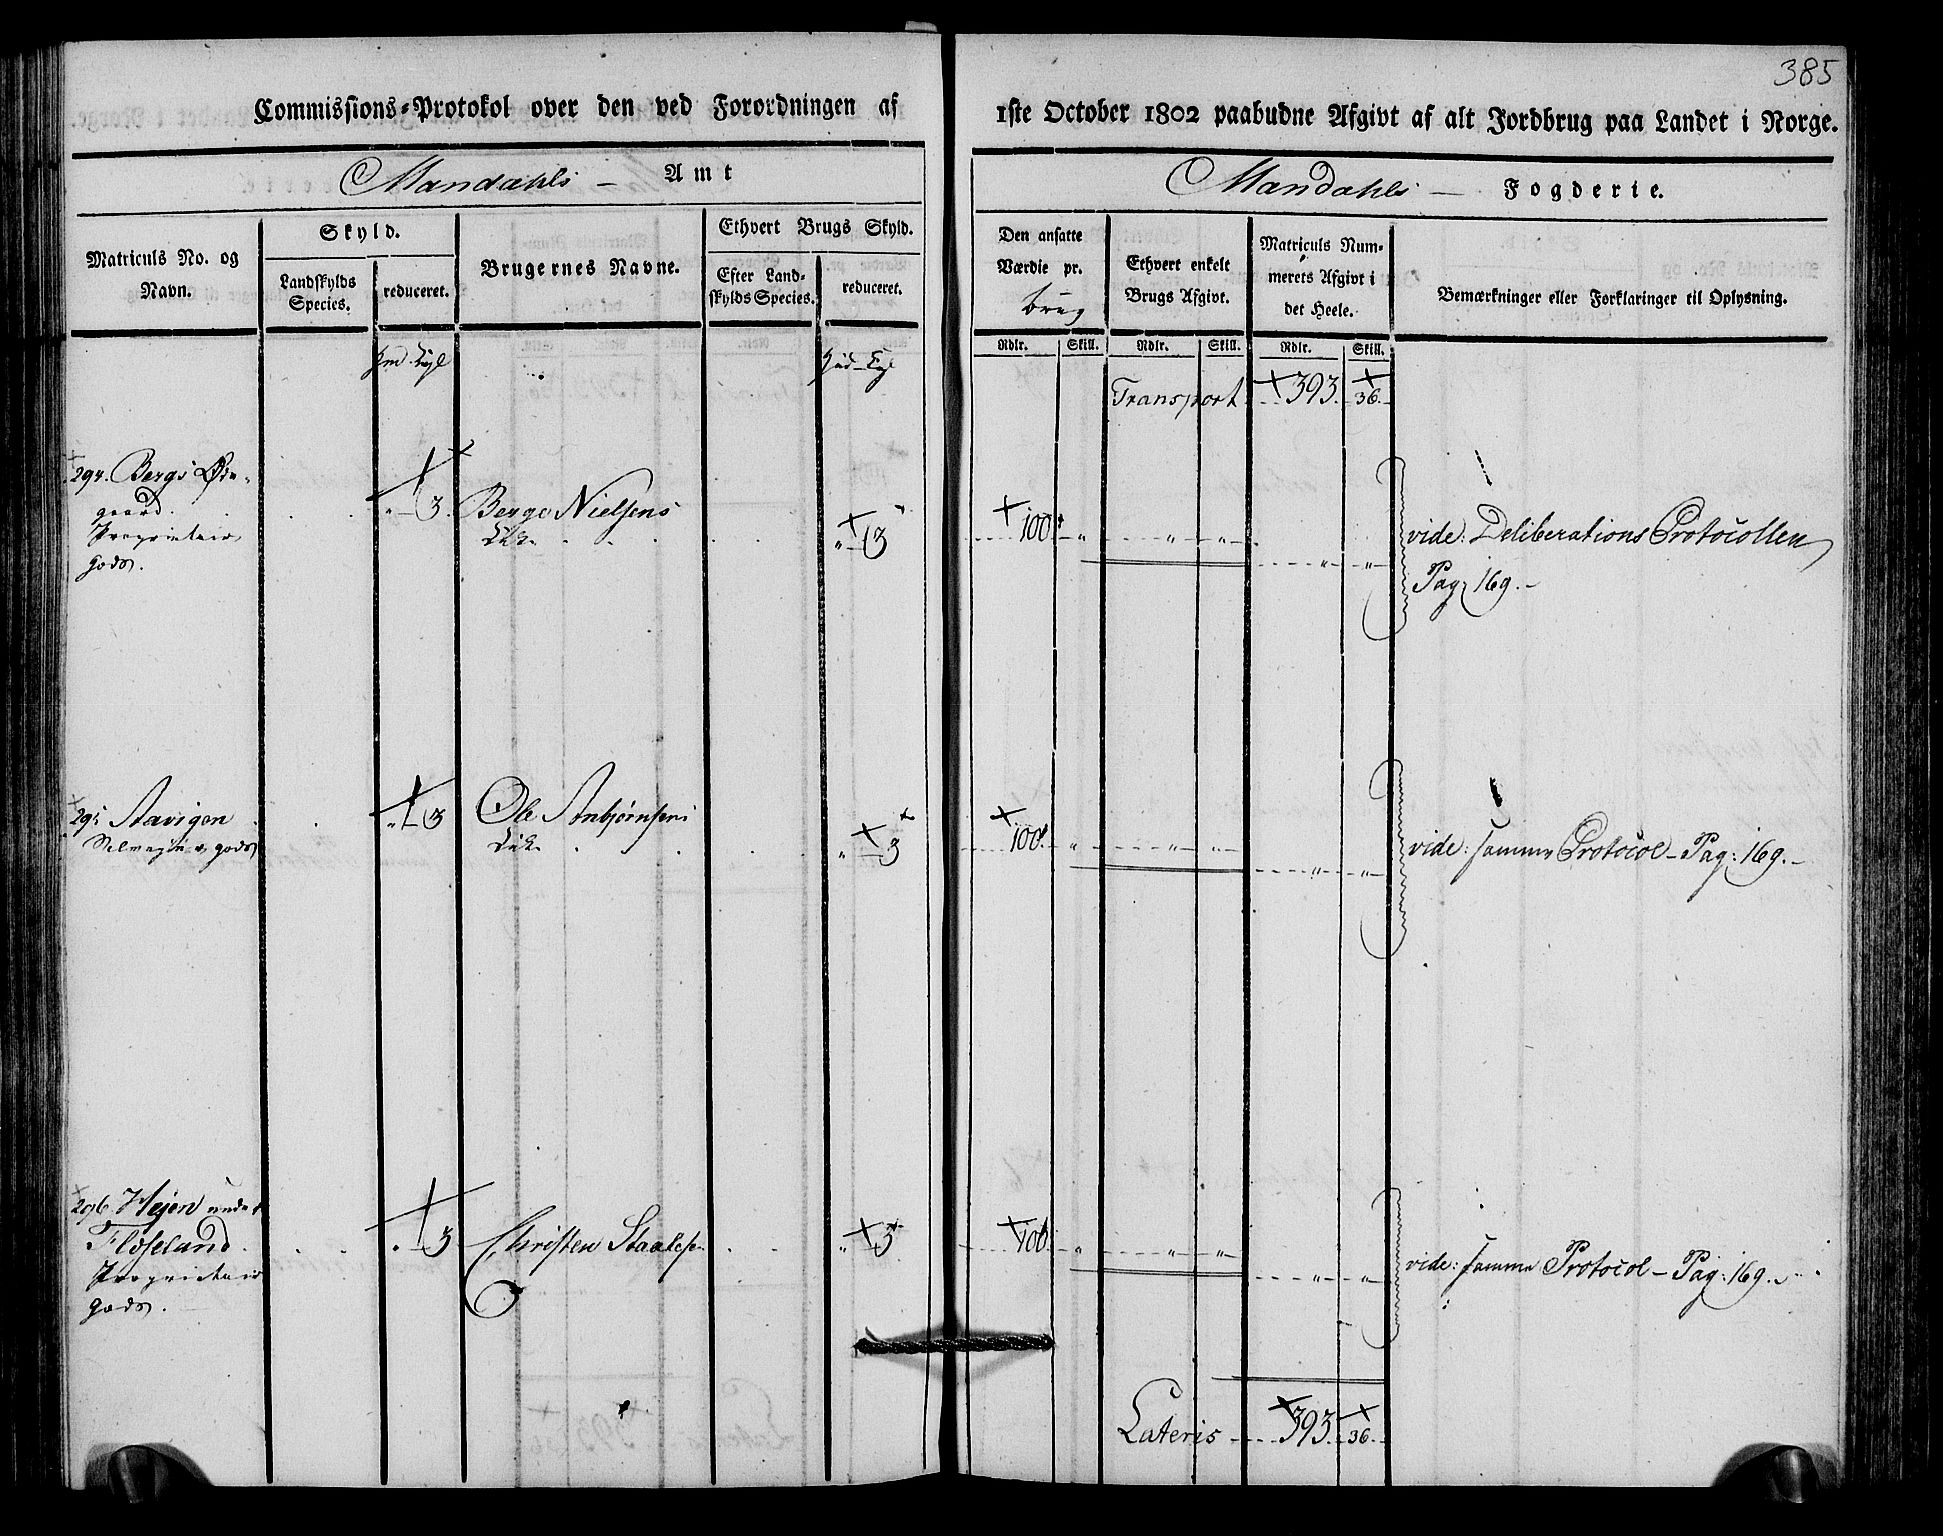 385
Commissions-Protokol over den ved Forordningen af 1ste October 1802 paabudne Afgivt af alt Jordbrug paa Landet i Norge.
Mandahls – Amt
Mandahls – Fogderie.
Matriculs No. og Navn.
Skyld.
Landskylds Species.
reduceret.
Brugernes Navne.
Ethvert Brugs Skyld.
Efter Landskylds Species.
reduceret.
Den ansatte Værdie pr. brug
Ethvert enkelt Brugs Afgivt.
Matriculs Nummerets Afgivt i det Heele.
Bemærkninger eller Forklaringer til Oplysning.
Rdlr. Skill. Rdlr. Skill. Rdlr. Skill.
Transport 393. 36.
294. Bergs Øde-
gaard.
Proprietair
gods.
" 3. Berge Nielsens " 3 100 " " "
vide: Deliberations Protocollen
Pag: 169.-
295 Aavigen
Selvegier gods
" 3 Ole Anbjørnsens " 3 100. " " "
vide: samme Protocol – Pag: 169.–
296 Hejen under
Floseland.
Proprietair
gods.
" 3 Christen Staalese " 3 100. " " "
vide: samme Protocol – Pag: 169.
Lateris 393. 36.